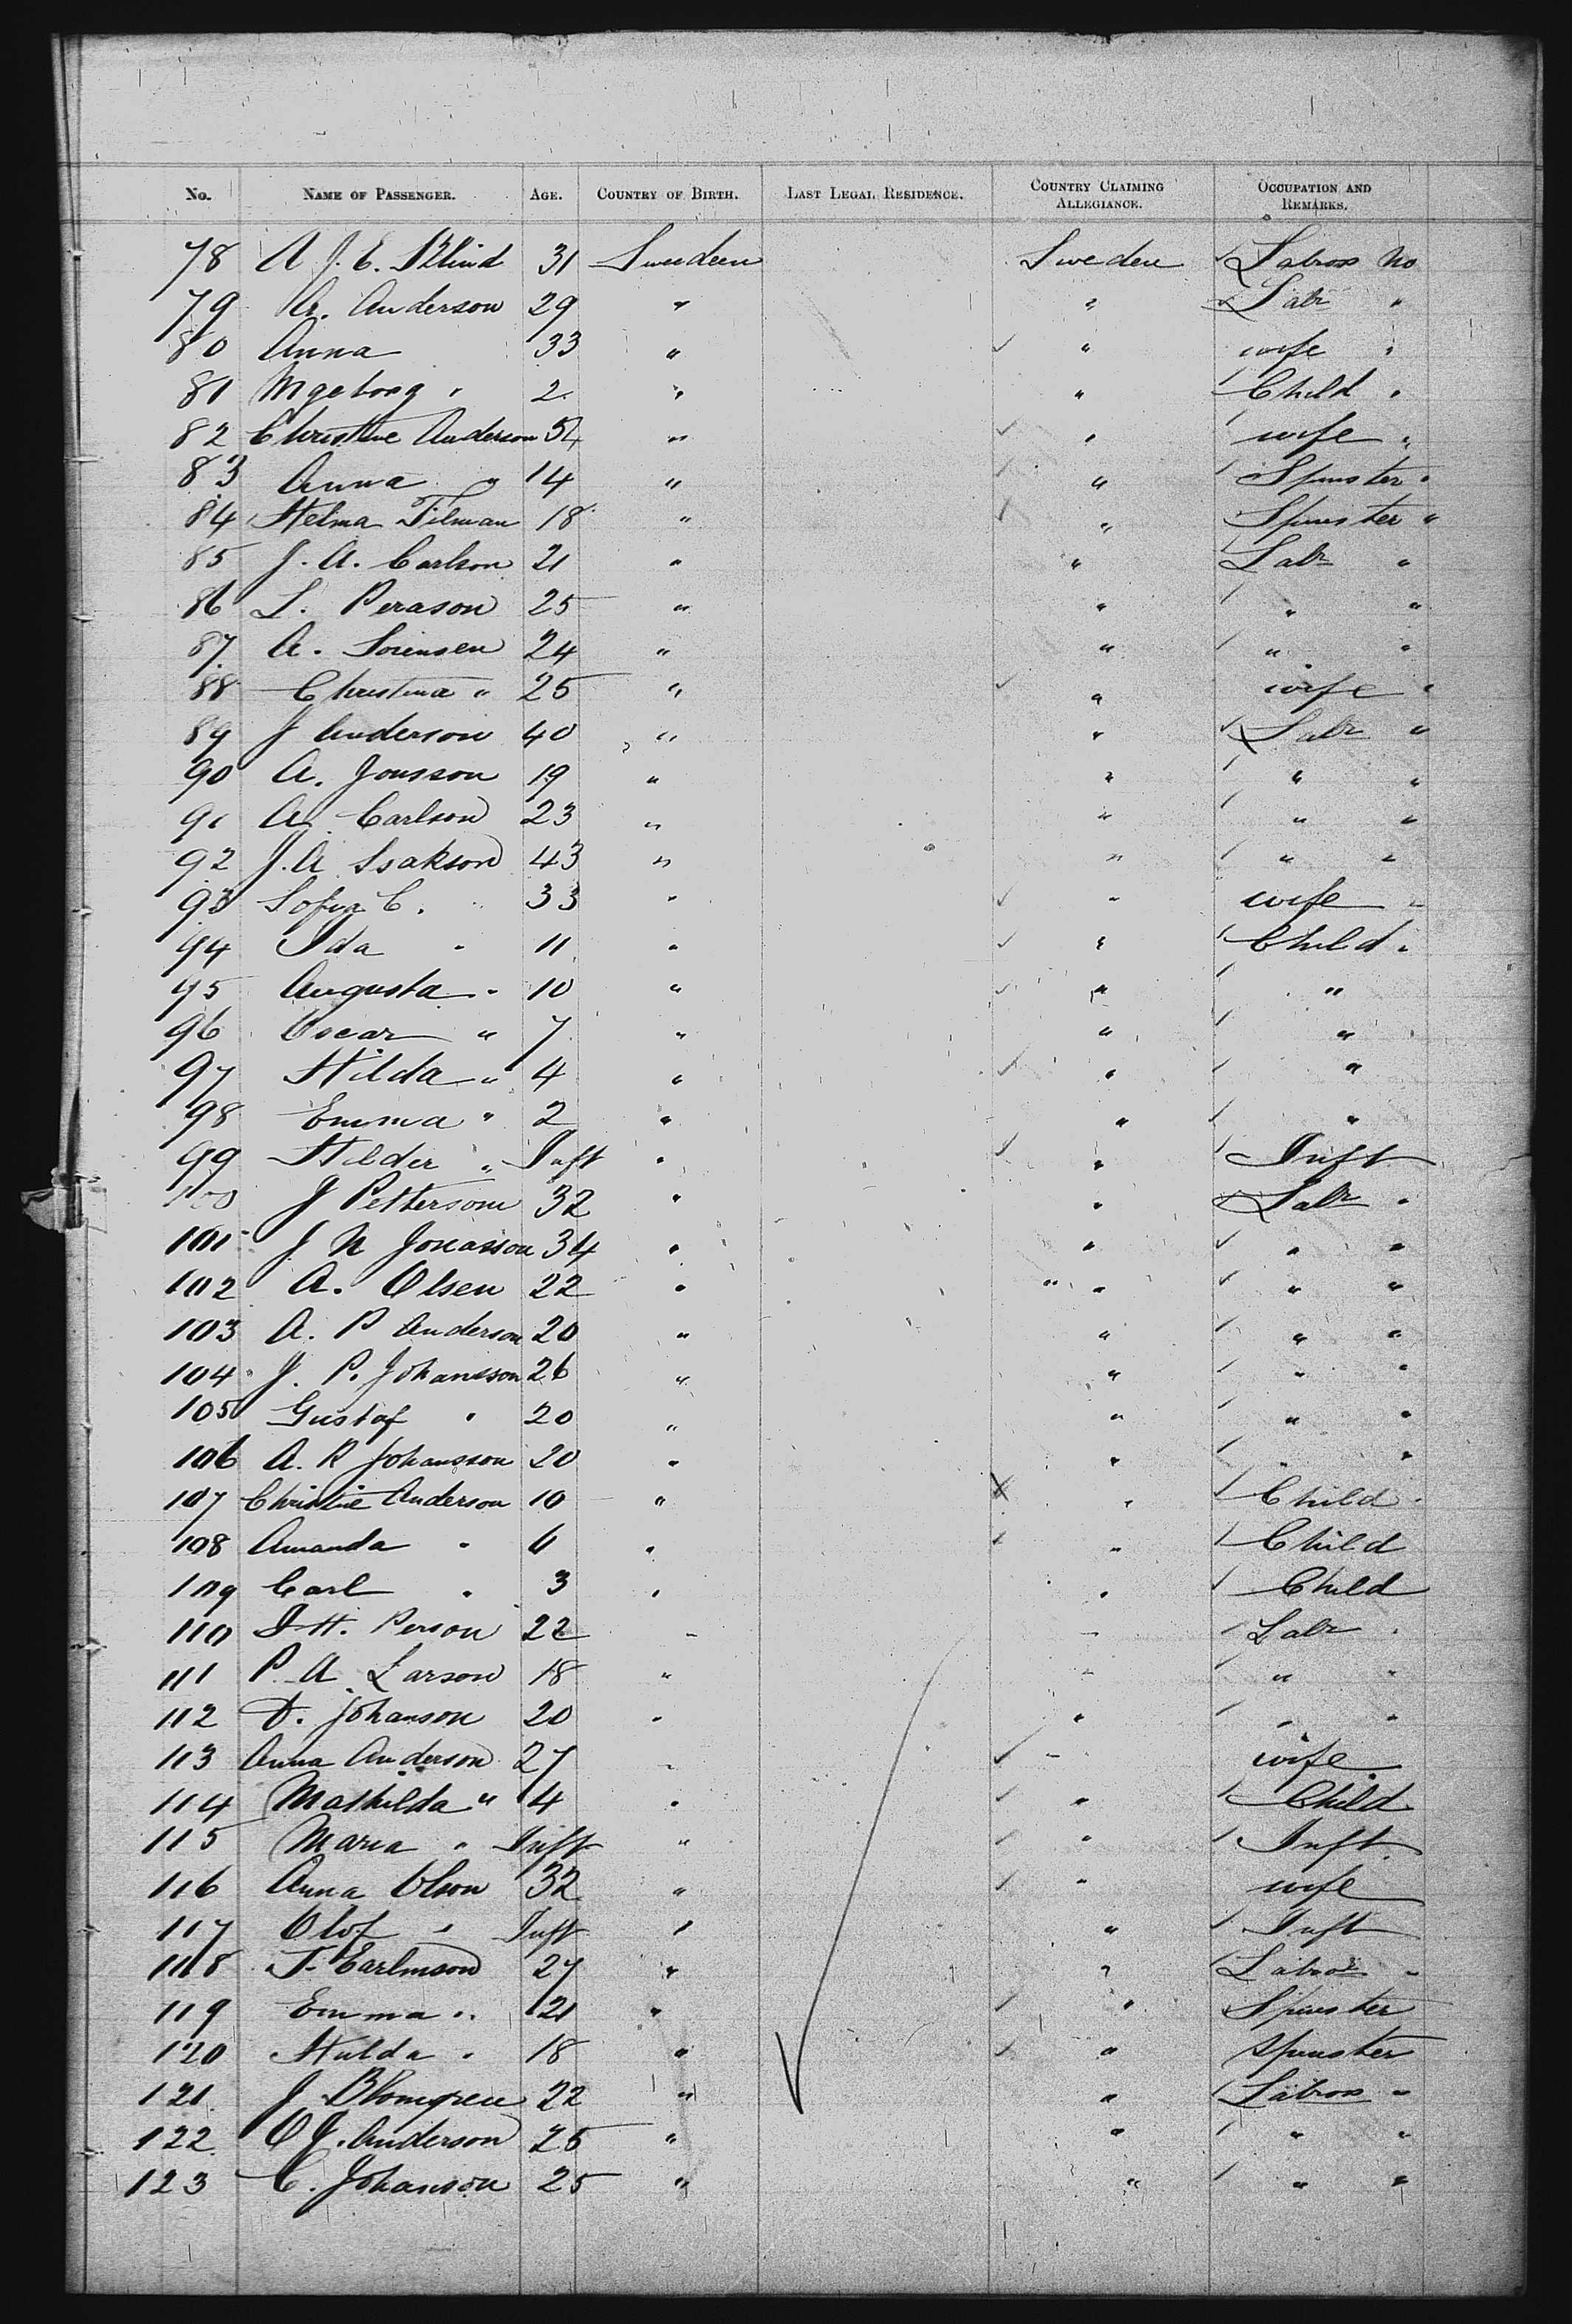 No. NAME OF PASSENGER. AGE. COUNTRY OF BIRTH. LAST LEGAL RESIDENCE. COUNTRY CLAIMING ALLEGIANCE. OCCUPATION AND REMARKS.
78 A J. E. 31 Sweden Sweden Labor No
79 A. Anderson 29 " " Labr "
80 Anna 33 " " wife "
81 Ingeborg " 2 " " Child "
82 Christine Anderson 54 " " wife "
83 Anna " 14 " " Spinster "
84 Helma Tilman 18 " " Spinster "
85 J. A. Carlson 21 " " Labr "
86 L. Perason 25 " " " "
87 A. Sorensen 24 " " " "
88 Christina " 25 " " wife "
89 J Anderson 40 " " Labr "
90 A. Jonsson 19 " " " "
91 A. Carlson 23 " " " "
92 J. A Isakson 43 " " " "
93 Sofia C. " 33 " " wife "
94 Ida " 11 " " Child "
95 Augusta " 10 " " "
96 Oscar " 7 " " "
97 Hilda " 4 " " "
98 Emma " 2 " " "
99 Hilder " Inft " " Inft
100 J Pettersom 32 " " Labr "
101 J. N Jonasson 34 " " " "
102 A. Olsen 22 " " " "
103 A. P Anderson 20 " " " "
104 J. P. Johansson 26 " " " "
105 Gustaf " 20 " " " "
106 A. R Johansson 20 " " " "
107 Christine Anderson 10 " " Child "
108 Amanda " 6 " " Child
109 Carl " 3 " " Child
110 H. Person 22 " " Labr "
111 P. A. Larson 18 " " " "
112 Johanson 20 " " " "
113 Anna Anderson 27 " " wife
114 Mathilda " 4 " " Child
115 Maria " Inft " " Inft
116 Anna Olson 32 " " wife
117 Olof " Inft " " Inft
118 Earlmson 27 " " Labor "
119 Emma " 21 " " Spinster
120 Hulda " 18 " " Spinster
121 J Blomgren 22 " " Labor "
122 O J. Anderson 25 " " " "
123 C. Johanson 25 " " " "